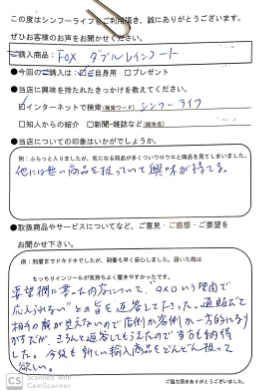 この度はシンフーライフをご利用頂き、誠にありがとうございます。
ぜひお客様のお声をお聞かせください。
ご購入商品: FOX ダブルレインコート
●今回のご購入は: ☑ご自身用 □プレゼント
●当店に興味を持たれたきっかけを教えてください。
☑インターネットで検索(検索ワード) シンフーライフ
□知人からの紹介 □新聞・雑誌など(媒体名)
●当店についての印象はいかがでしたか?
例:ふらっと入りましたが、気になる商品が多くついウロウロと商品を見てしまいました。
他には無い商品を扱っていて興味が持てる。
●取扱商品やサービスについてなど、ご意見・ご感想・ご要望を
お聞かせ下さい。
例:到着までドキドキでしたが、到着も早く安心しました。届いた靴は
もっちりインソールが気持ちよく履きやすかったです。
要望欄に書いた内容について、"〇×〇という理由で
応えられない"との旨を返答して下さった。通販だと
相手の顔が見えないので店側か客側か一方的になり
がちだが、きちんと返答してもらえたので当方も納得
した。今後も新しい輸入商品をどんどん扱って
欲しい。
ご協力ありがとうございました。
CS Scanned with
CamScanner